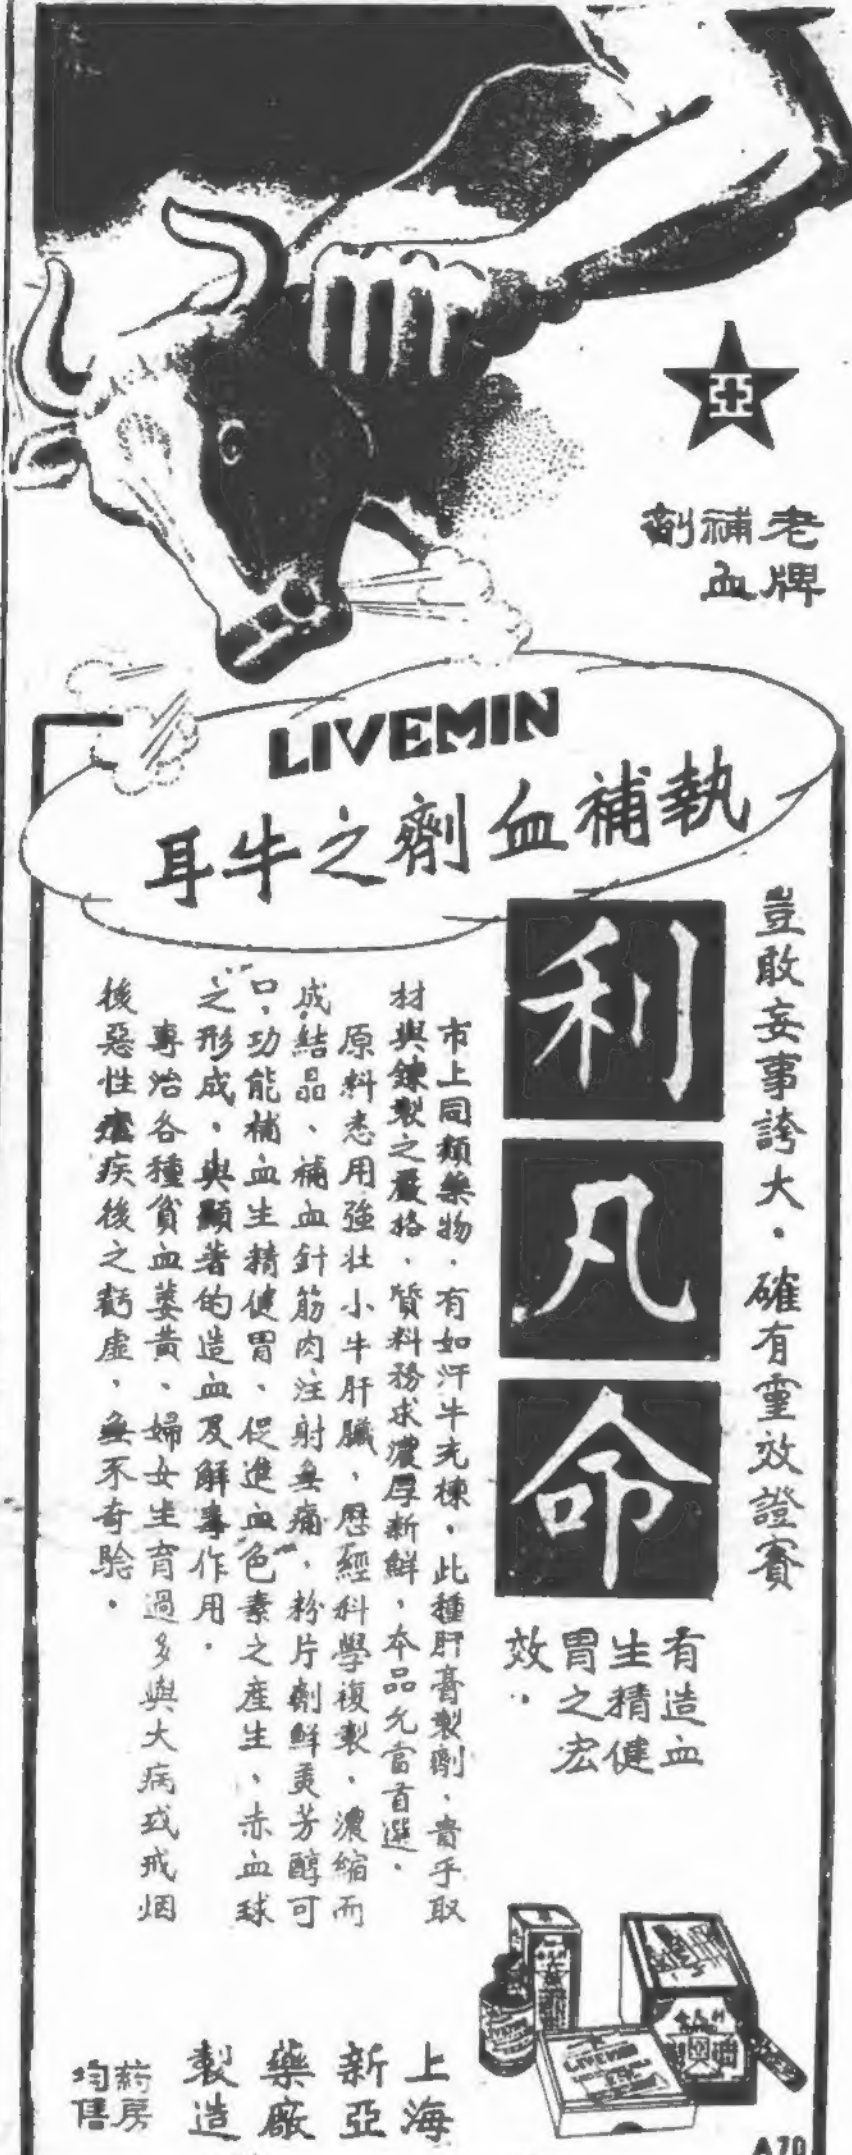 亞
老牌
補血
劑
LIVEMIN
執補血劑之牛耳
豈敢妄事誇大。確有靈效證實
利凡命
有造血
生精健
胃之宏
效。
市上同類藥物，有如汗牛充棟，此種肝膏製劑，貴乎取
材與鍊製之嚴格，質料務求濃厚新鮮，本品允當首選。
原料悉用強壯小牛肝臟，歷經科學複製，濃縮而
成結晶、補血針筋肉注射無痛，粉片劑鮮美芳醇可
口，功能補血生精健胃、促進血色素之產生、赤血球
之形成，與顯著的造血及解毒作用。
專治各種貧血萎黃、婦女生育過多與大病或戒烟
後惡性瘧疾後之虧虛，無不奇驗。
LIVEMIN
上海
新亞
藥廠
製造
藥房
均售
A70